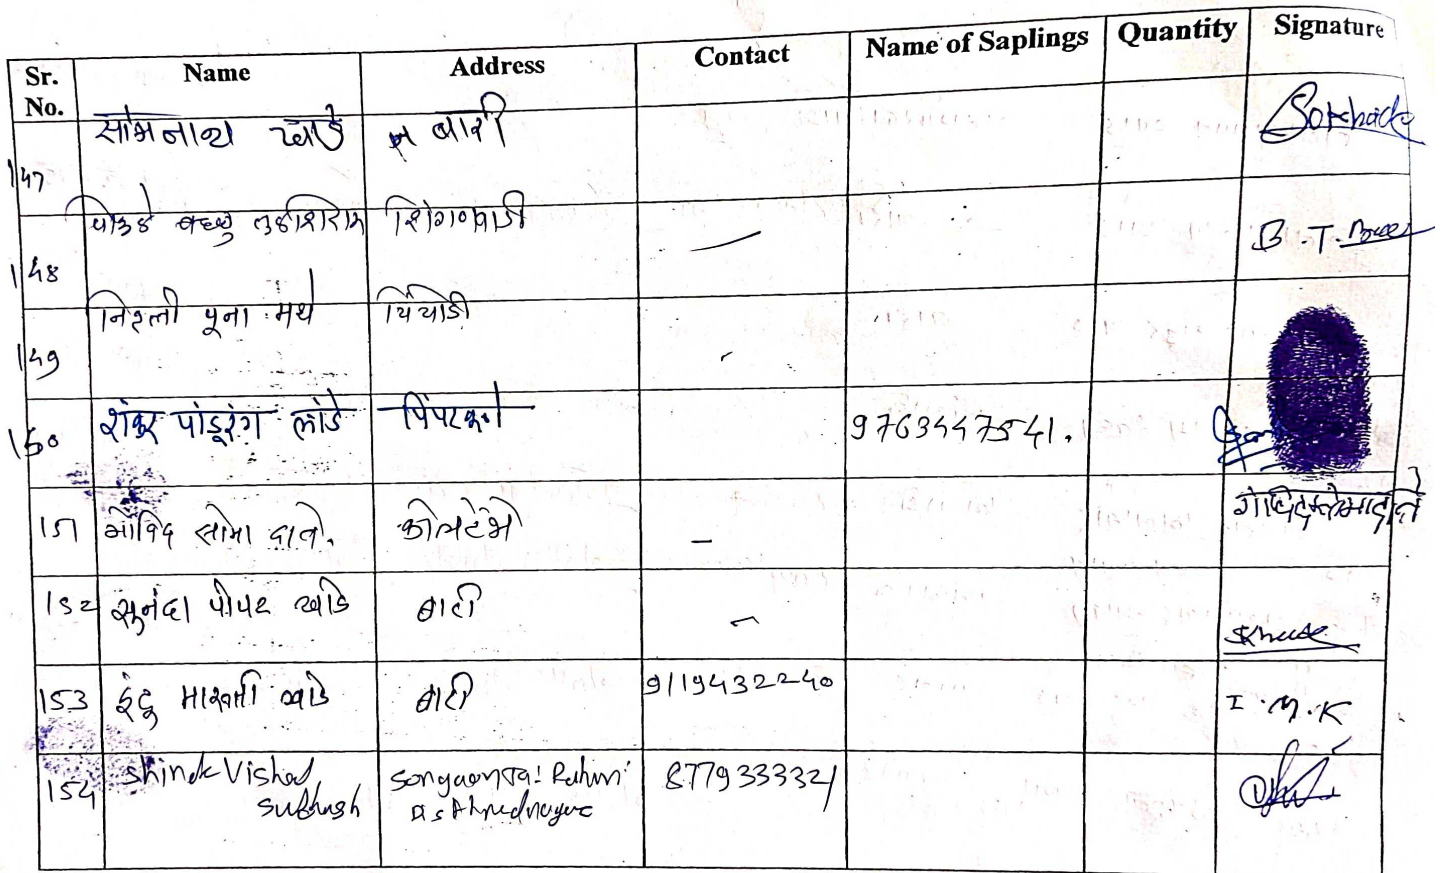 Sr. No. Name Address Contact Name of Saplings Quantity Signature
147 सोमनाथ खाडे बारी
148 तुळशिराम शिंगणवाडी — B.T.
149 पूना मधे
150 शंकर पांडूरंग लांडे 9763447541.
151 गोविंद सोमा दाते. कोलटेंभे —
152 सुनंदा पोपट खाडे बारी
153 इंदू मारुती खाडे बारी 9119432240 I.M.K
154 Shinde Vishal Subhash Songaon Ta: Rahuri Dis Ahmednagar 8779333321